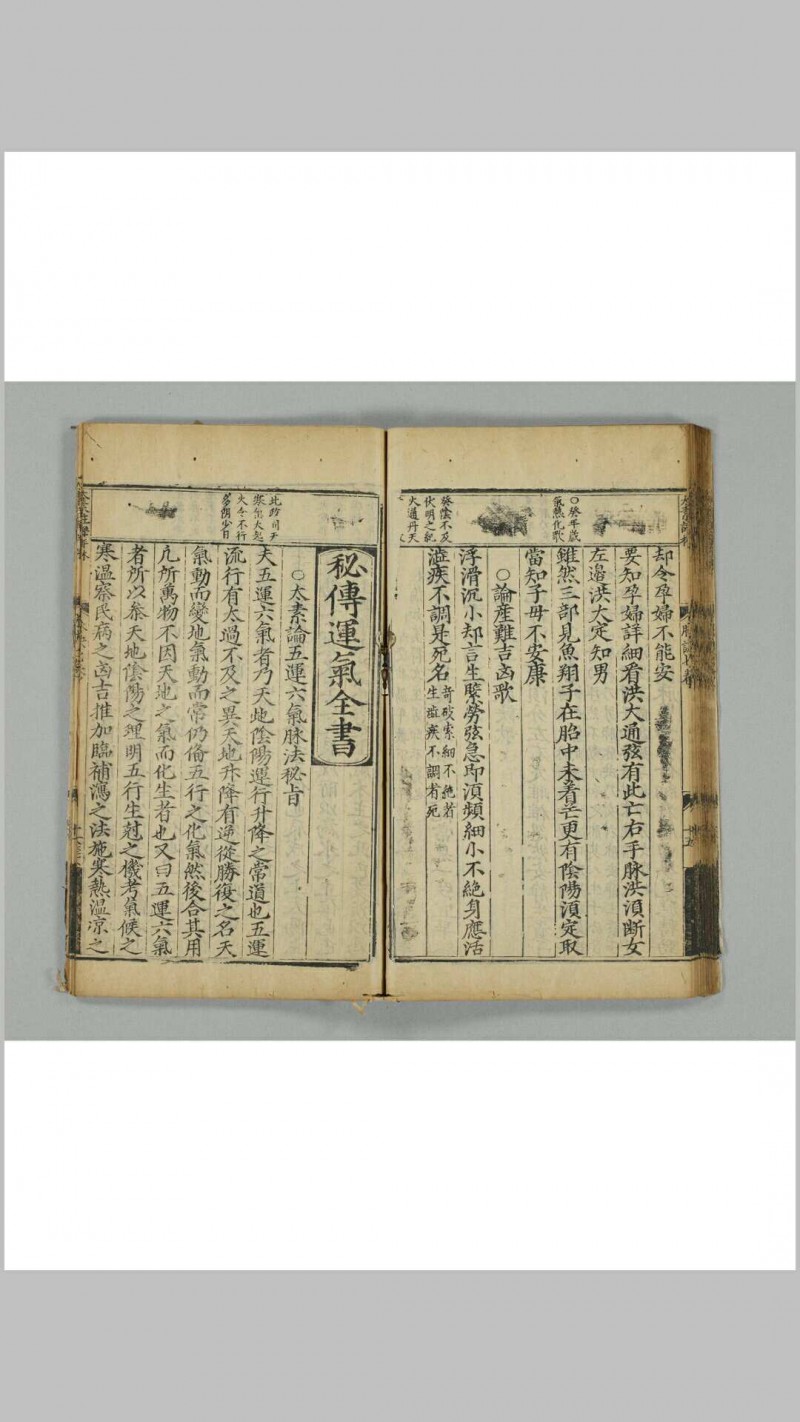 ○癸年歲
氣熱化歌
癸陰不及
伏明之紀
大過丹天
却令孕婦不能安
要知孕婦詳細看洪大通弦有此亡右手脉洪湏断女
左邉洪大定知男
雖然三部見魚翔子在胎中未看亡更有陰陽湏定取
當知子母不安康
○論産難吉凶歌
浮滑沉小却言生緊勞弦急即湏頻細小不絶身應活
澁疾不調是死名
竒破索細不絶者
生澁疾不調者死
此時司天
寒能大起
火令不行
秘傳運氣全書
○太素論五運六氣脉法秘旨
夫五運六氣者乃天地陰陽運行升降之常道也五運
流行有太過不及之異天地升降有逆從勝復之名天
氣動而變地氣動而常仍俻五行之化氣然後合其用
凢所萬物不因天地之氣而化生者也又曰五運六氣
者所以叅天地陰陽之理明五行生尅之機考氣候之
寒温察民病之凶吉推加臨補瀉之法施寒熱温凉之